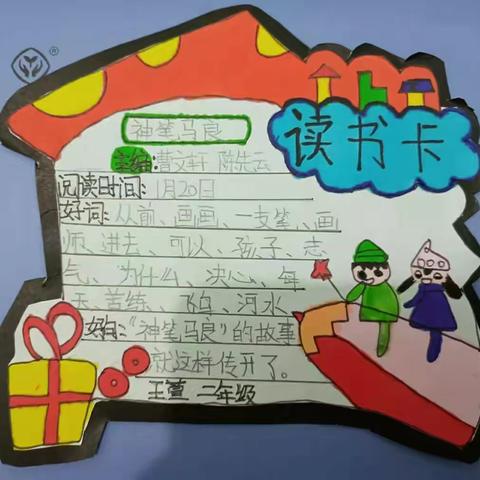 读书卡
神笔马良
主编:曹文轩 陈先云
阅读时间:1月20日
好词:从前、画画、一支笔、画
师、进去、可以、孩子、志
气、为什么、决心、每
天、苦练、飞白、河水
好句:“神笔马良”的故事
就这样传开了。
王萱 二年级